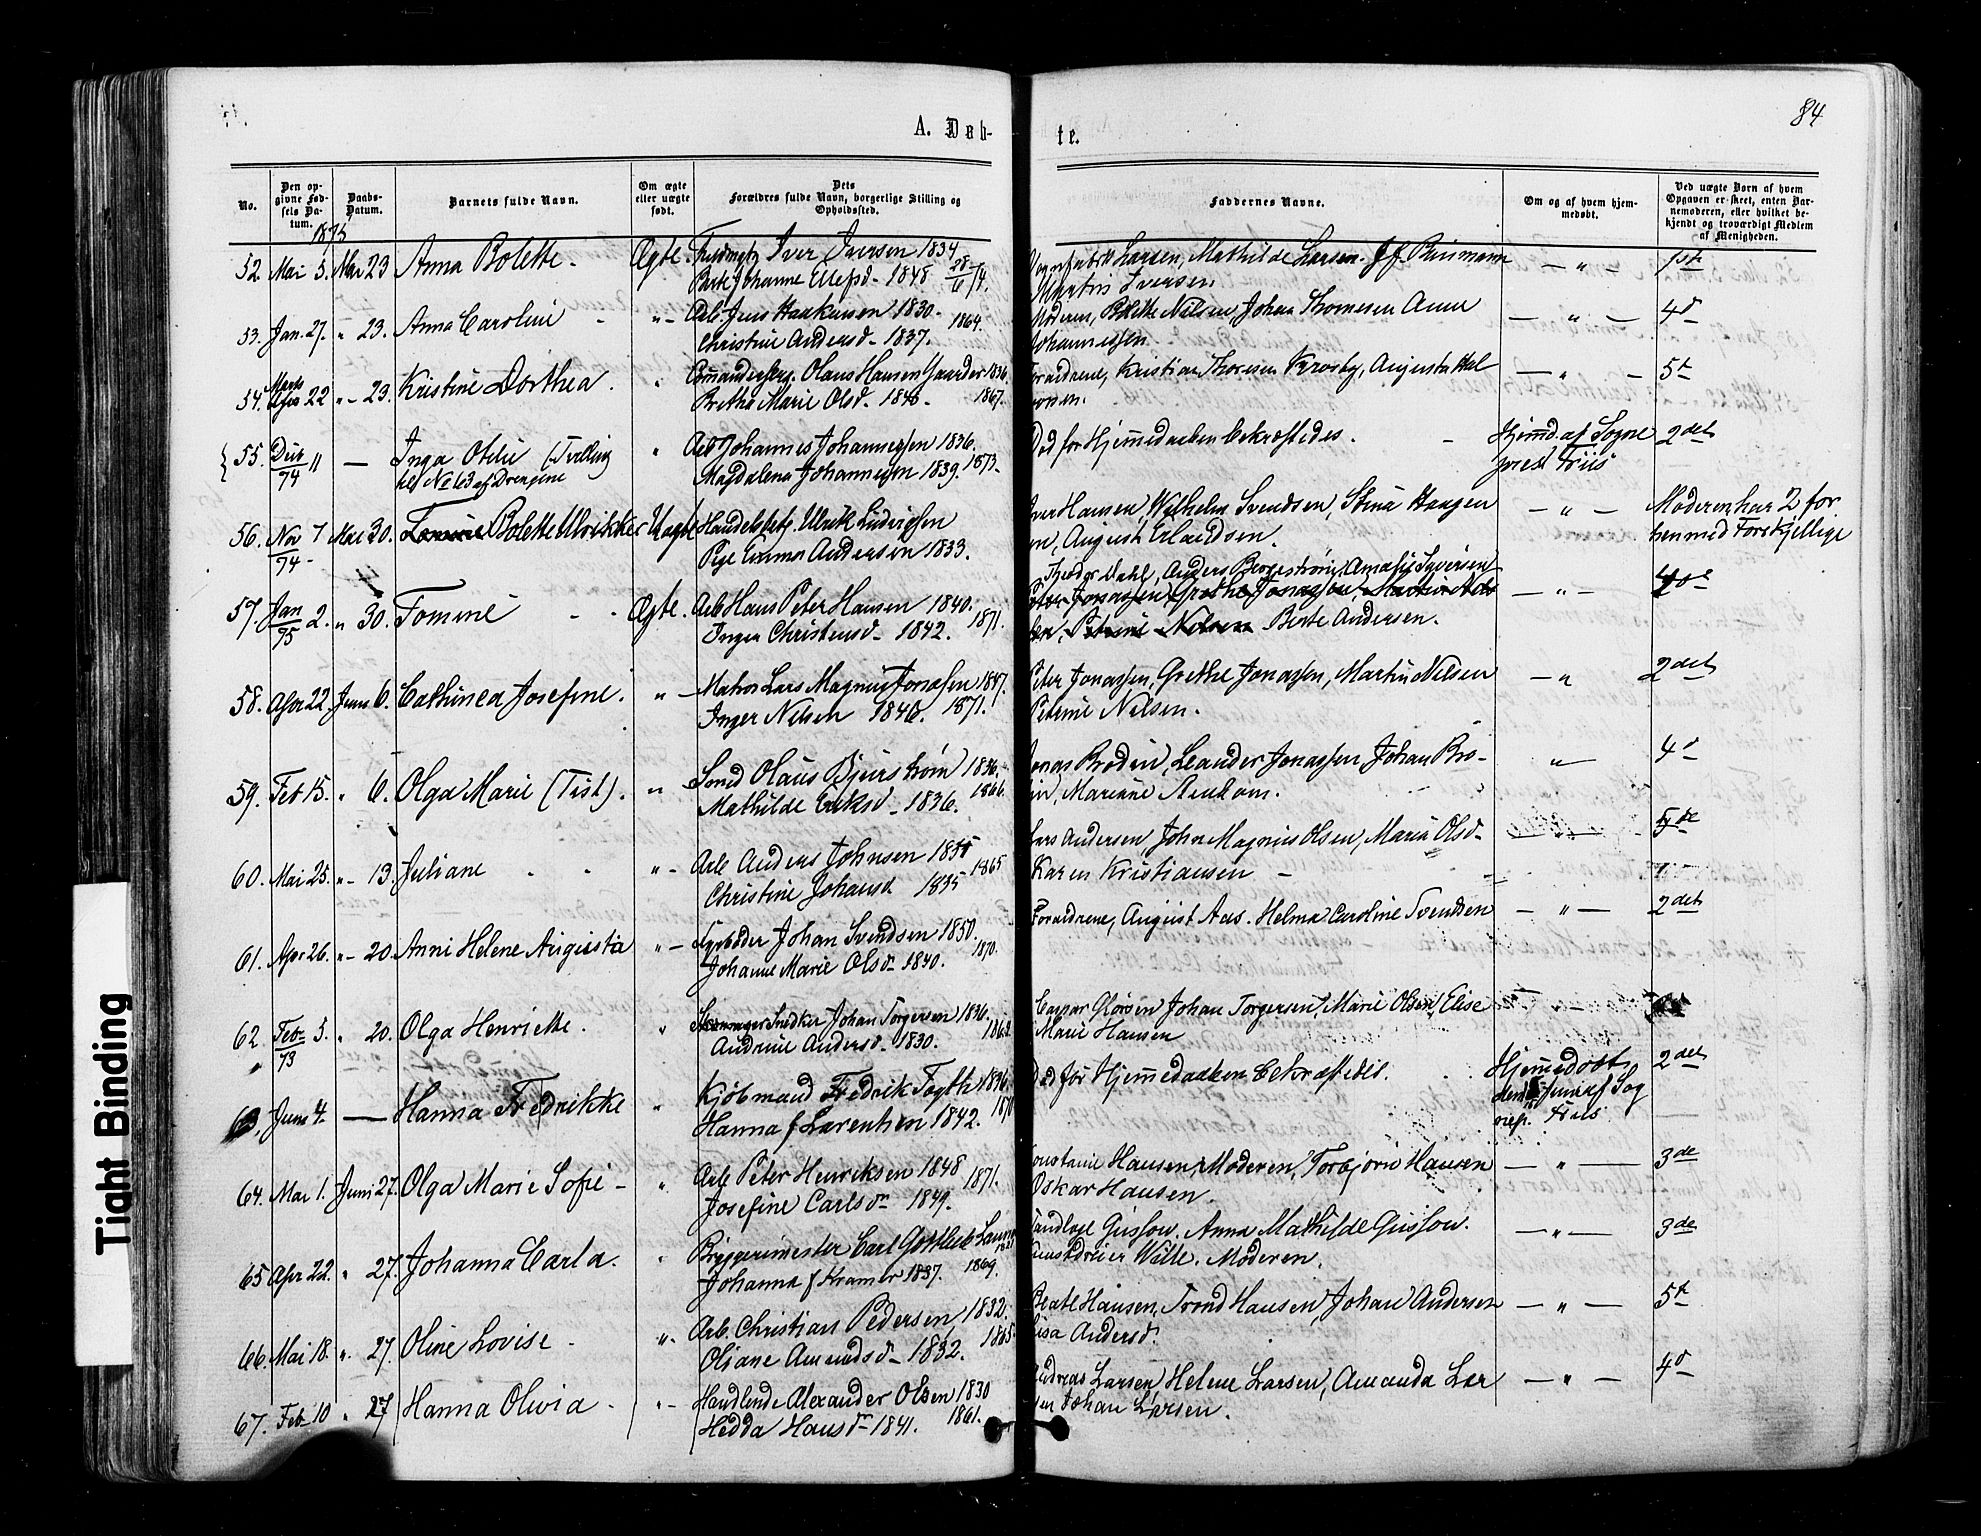 84
A. Døb-
te.
No.
Den op-
givne Fød-
sels Da-
tum.
Daabs-
Datum.
Barnets fulde Navn.
Om ægte
eller uægte
født.
Dets
Forældres fulde Navn, borgerlige Stilling og
Opholdssted.
Faddernes Navne.
Om og af hvem hjem-
medøbt.
Ved uægte Børn af hvem
Opgaven er skeet, enten Bar-
nemoderen, eller hvilket be-
kjendt og troværdigt Medlem
af Menigheden.
1875
52. Mai 5. Mai 23 Anna Bolette. Ægte. Iver Iversen 1834 Larsen, Mathilde Larsen. Jf. Binmann — " — 1ste
Johanne Ellefsd. 1848 28/6 74. Iversen.
53. Jan. 27. " 23. Anna Caroline " Arb. Jens Haakensen 1830. Moderen, Bolette Nilsen, Johan Thomesen Anne — " — 4d
Christine Andersd. 1837. 1864. Johannessen
54. 22 " 23. Kristine Dorthea. " Olaus Hansen Gaarder 1836 Forældrene, Kristian Thoresen Krosby, Augusta Hal — " — 5t
Bertha Marie Olsd. 1840. 1867.
55. Decb 11 — Inga Otilie (Tvilling " Arb Johannes Johannessen 1836. Død før Hjemmedaaben bekræftedes. Hjemd. af Sogne 2det
74 til No 63 af Drengene Magdalena Johannessen 1839. 1873. prest Friis
56. Nov 7 Mai 30. Bolette Ulrikke Uægte Handelsbetj. Ulrik Ludvigsen Iver Hansen Wilhelm Svendsen, Stina Haagen — " — Moderen har 2 for
74. Pige Emma Andersen 1833. August Erlandsen. hen med Forskjellige
57. Jan 2. " 30. Tomine Ægte. Arb Hans Peter Hansen 1840. Theodor Dahl, Anders Bergestrøm, Amalie Syversen — " — 4de
75 Inger Christensd. 1842. 1871. Peter Jonassen Grethe Jonassen, Martin Nils
Petrine Nilsen Berte Andersen.
58. Apr 22. Juni 6. Cathinca Josefine. " Matros Lars Magnus Jonassen 1847. Peter Jonassen, Grethe Jonassen, Martin Nilsen — " 2det
Inger Nilsen 1848. 1871. Petrine Nilsen.
59. Feb 15. " 6. Olga Marie (Tist). " Smed Olaus Bjurstrøm 1836. Jonas Brodin, Leander Jonassen Johan Bro- " 4d
Mathilde Eriksd. 1836. 1866. Marianne Stenkom.
60. Mai 25. " 13. Juliane " Arb Anders Johnsen 1835 Lars Andersen, John Magnus Olsen, Maria Olsd.
Christine Johansd 1835 1865 Karen Kristiansen
61. Apr 26. " 20. Anni Helene Augusta " Fyrbøder Johan Svendsen 1850. Forældrene, August Aas. Helma Caroline Svendsen — " — 2det
Johanne Marie Olsd. 1840. 1870.
62. Febr 5. " 20. Olga Henriette. " Snedker Johan Torgersen 1836. Caspar Olorsen Johan Torgersen, Marie Olsen, Elise — " —
73 Andrine Andersd. 1830. 1862 Marie Hansen
63. Juni 4. — Hanna Fredrikke " Kjøbmand Fredrik Fogth 1836. Død før Hjemmedaaben bekræftedes. Hjemmedøbt 2det
Hanna f Larentzen 1842. 1870 den Juni af Sog
nepr. Friis
64. Mai 1. Juni 27. Olga Marie Sofie " Arb Peter Henriksen 1848 Hansen, Moderen, Torbjørn Hansen — " — 3de
Josefine Carlsd. 1849. 1871. Oskar Hansen.
65 Apr 22. " 27. Johanna Carla. " Bryggerimester Carl Gottlieb Gussow. Anna Mathilde Gussow. — " — 3de
Johanna f Kramer 1837. 1869. Witte. Moderen.
66. Mai 18. " 27. Oline Lovise. " Arb. Christian Pedersen 1832. Beate Hansen, Trond Hansen, Johan Andersen — " — 5t
Oliane Amundsd. 1832. 1865. Lisa Andersd.
67. Feb 10 " 27 Hanna Olivia. " Handlende Alexander Olsen 1830 Andreas Larsen Helene Larsen, Amanda Lar — " — 4d
Hedda Hansd. 1841. 1861. Johan Larsen.
Tight Binding